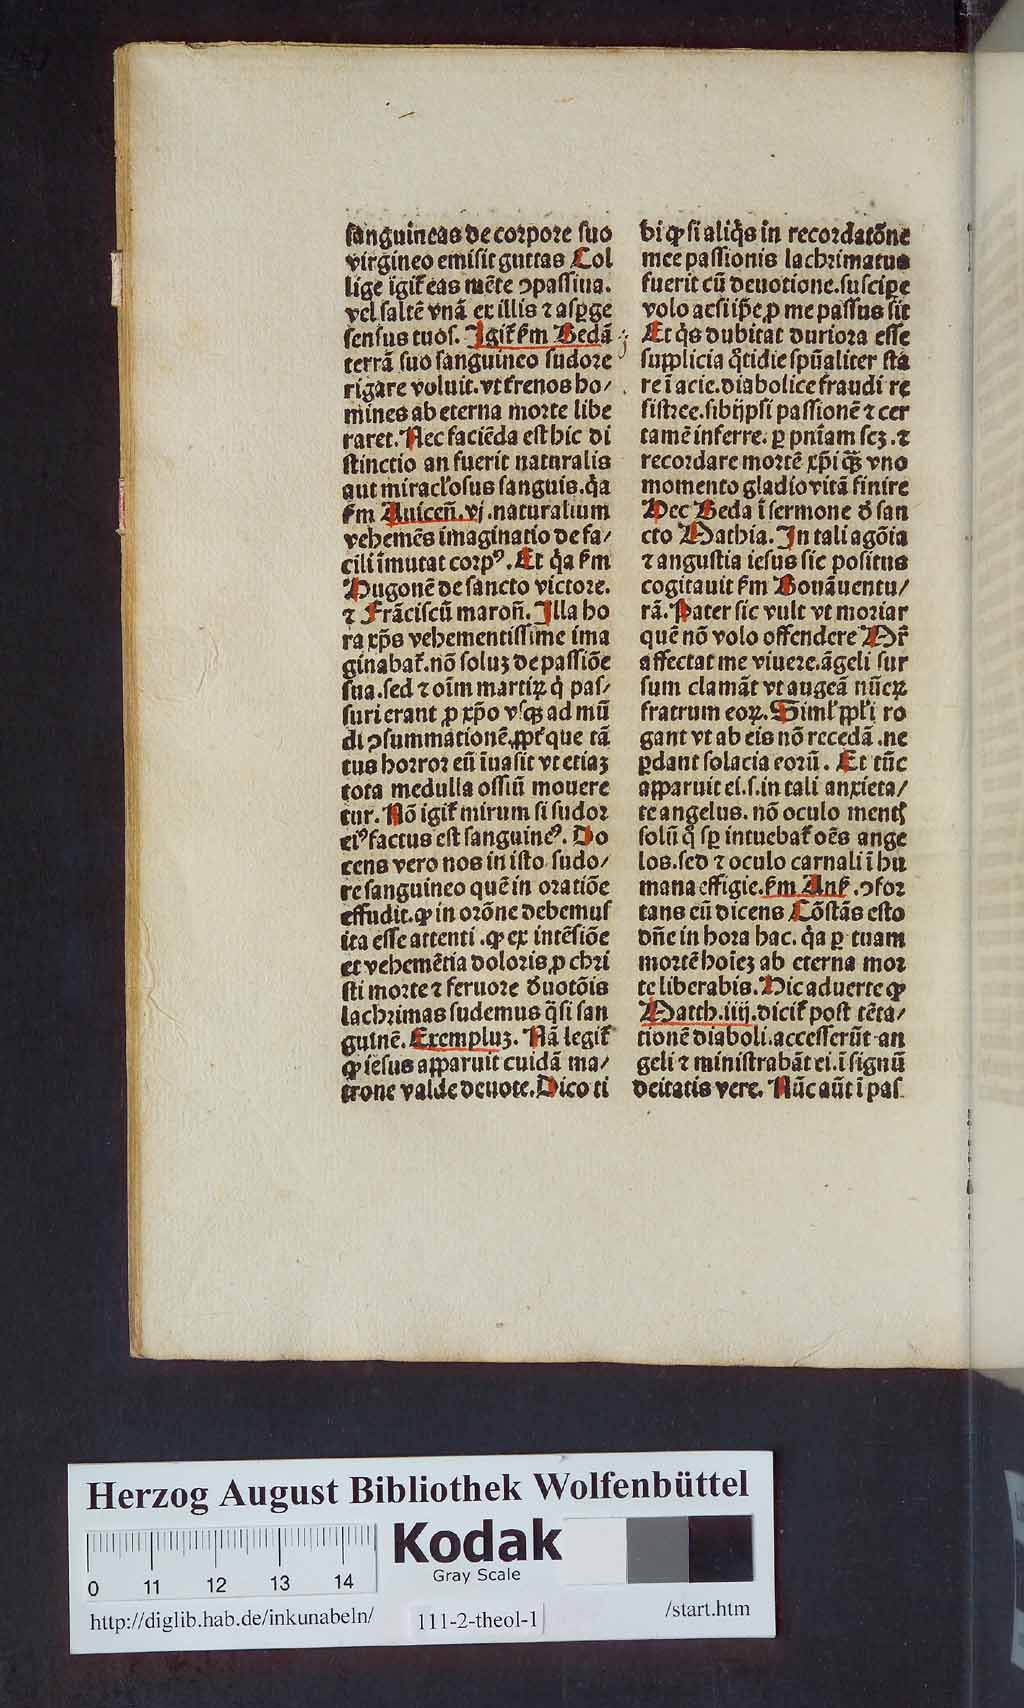 sanguineas de corpore suo
virgineo emisit guttas Col
lige igit᷑ eas mēte ꝯpassiua.
vel saltē vnā ex illis ⁊ asꝑge
sensus tuos. Igit᷑ ẜm Bedā
terrā suo sanguineo sudore
rigare voluit. vt terrenos ho/
mines ab eterna morte libe
raret. Nec faciēda est hic di
stinctio an fuerit naturalis
aut miracl'osus sanguis. q̇a
ẜm Auiceñ. vj .naturalium
vehemēs imaginatio de fa/
cili īmutat corpꝰ. Et q̇a ẜm
Hugonē de sancto victore.
⁊ Frāciscū maroñ. Illa ho
ra xp̄s vehementissime ima
ginabat᷑. nō soluꝫ de passiōe
sua. sed ⁊ oīm martiꝝ q̇ pas/
suri erant ꝓ xp̄o vsqꝫ ad mū
di ꝯsummationē. ꝓpt᷑ que tā
tus horror eū īuasit vt etiaꝫ
tota medulla ossiū mouere
tur. Nō igit᷑ mirum si sudor
eiꝰ factus est sanguineꝰ. Do
cens vero nos in isto sudo/
re sanguineo quē in oratiōe
effudit. ꝙ in orōne debemus
ita esse attenti .ꝙ ex intēsiōe
et vehemētia doloris, ꝓ chri
sti morte ⁊ feruore ďuotōis
lachrimas sudemus q̄si san
guinē. Exempluꝫ. Nā legit᷑
ꝙ iesus apparuit cuidā ma/
trone valde deuote. Dico ti
bi ꝙ si aliq̇s in recordatōne
mee passionis lachrimatus
fuerit cū deuotione. suscipe
volo acsi ip̄e, ꝓ me passus sit
Et q̇s dubitat duriora esse
supplicia q̊tidie spūaliter sta
re ī acie. diabolice fraudi re
sistere. sibiijpsi passionē ⁊ cer
tamē inferre. ꝑ pnīam scꝫ .⁊
recordare mortē xp̄i qꝫ vno
momento gladio vitā finire
Hec Beda ī sermone ď san
cto Mathia. In tali agōia
⁊ angustia iesus sic positus
cogitauit ẜm Bonāuentu/
rā. Pater sic vult vt moriar
quē nō volo offendere Mr̄
affectat me viuere. āgeli sur
sum clamāt vt augeā nūeꝝ
fratrum eoꝝ. Simil' ꝓpl'i ro
gant vt ab eis nō recedā .ne
ꝑdant solacia eorū. Et tūc
apparuit ei .s. in tali anxieta/
te angelus. nō oculo ment̨
solū q̊ sꝑ intuebat᷑ oēs ange
los. sed ⁊ oculo carnali ī hu
mana effigie. ẜm Anẜ. ꝯfor
tans eū dicens Cōstās esto
dn̄e in hora hac. q̇a ꝑ tuam
mortē hoīeꝫ ab eterna mor
te liberabis. Hic aduerte ꝙ
Matth. iiij. dicit᷑ post tēta/
tionē diaboli. accesserūt an
geli ⁊ ministrabāt ei. ī signū
deitatis vere. Nūc aūt ī pas
Herzog August Bibliothek Wolfenbüttel
Kodak
Gray Scale
0 11 12 13 14
http://diglib.hab.de/inkunabeln/
111-2-theol-1
/start.htm